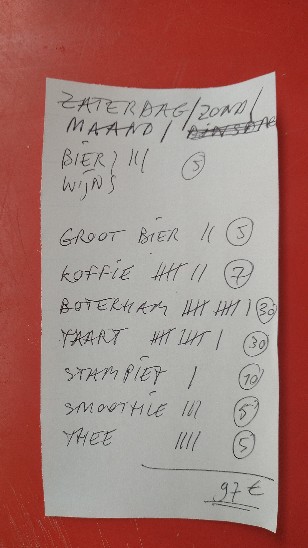 ZATERDAG/ZOND/
MAAND/ DINSDAG
BIER} ||| 5
WIJN}
GROOT BIER || 5
KOFFIE |||| || 7
BOTERHAM |||| |||| | 30
TAART |||| |||| | 30
STAMPIET | 10
SMOOTHIE ||| 5
THEE |||| 5
97 €